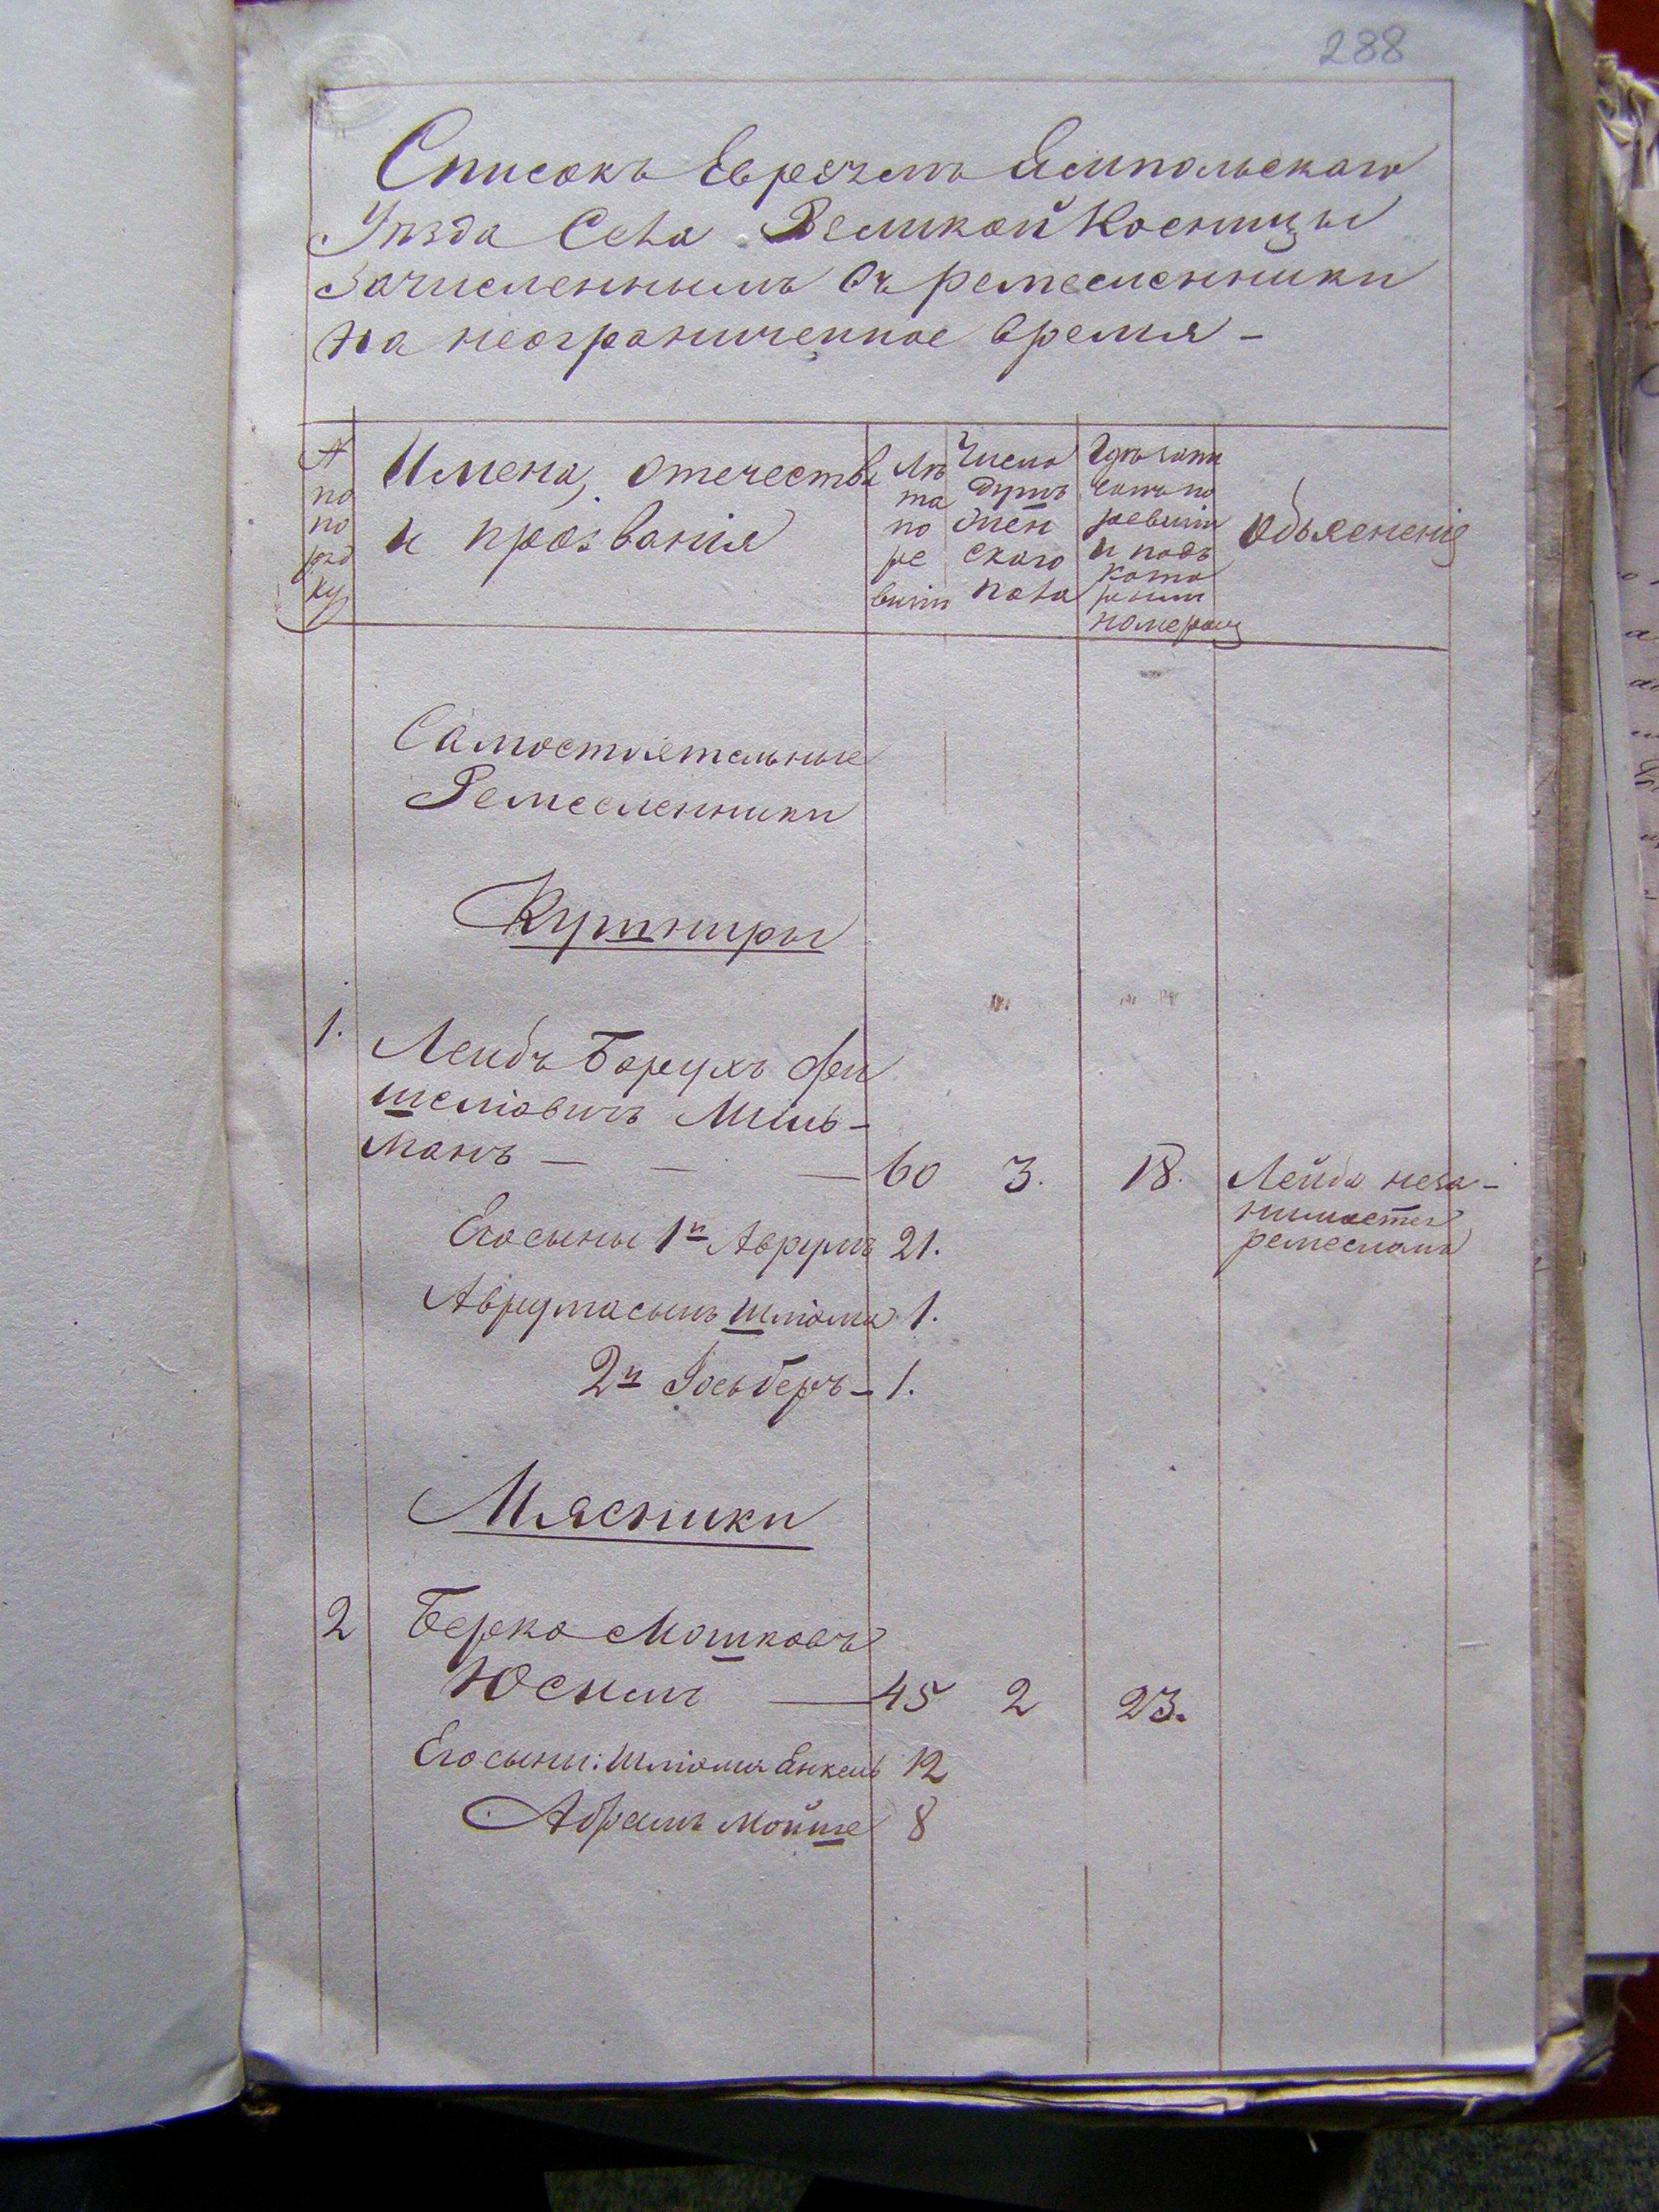 288
Списокъ Евреямъ Ямпольскаго
Уѣзда Села Великой Косницы
Зачисленнымъ въ ремесленники
на неограниченное время -
№ по порядку
Имена, отечества
и прозванія
Лѣ
та
по
ре
визіи
Число
душъ
жен
скаго
пола
Гдѣ запи
санъ по
ревизіи
и подъ
кото
рымъ
номеромъ
Объясненіе
Самостоятельные
Ремесленники
Кушниры
1. Лейбъ Борухъ Фи
шеліовичъ Миль-
манъ — — — 60 3. 18. Лейба неза-
нимается
ремесломъ
Его сыны 1й Аврумъ 21.
Аврума сынъ Шліома 1.
2й Іосьберъ - 1.
Мясники
2 Берко Мошковъ
Юсимъ — 45 2 23.
Его сыны: Шліома Енкель 12
Абрамъ Мойше 8